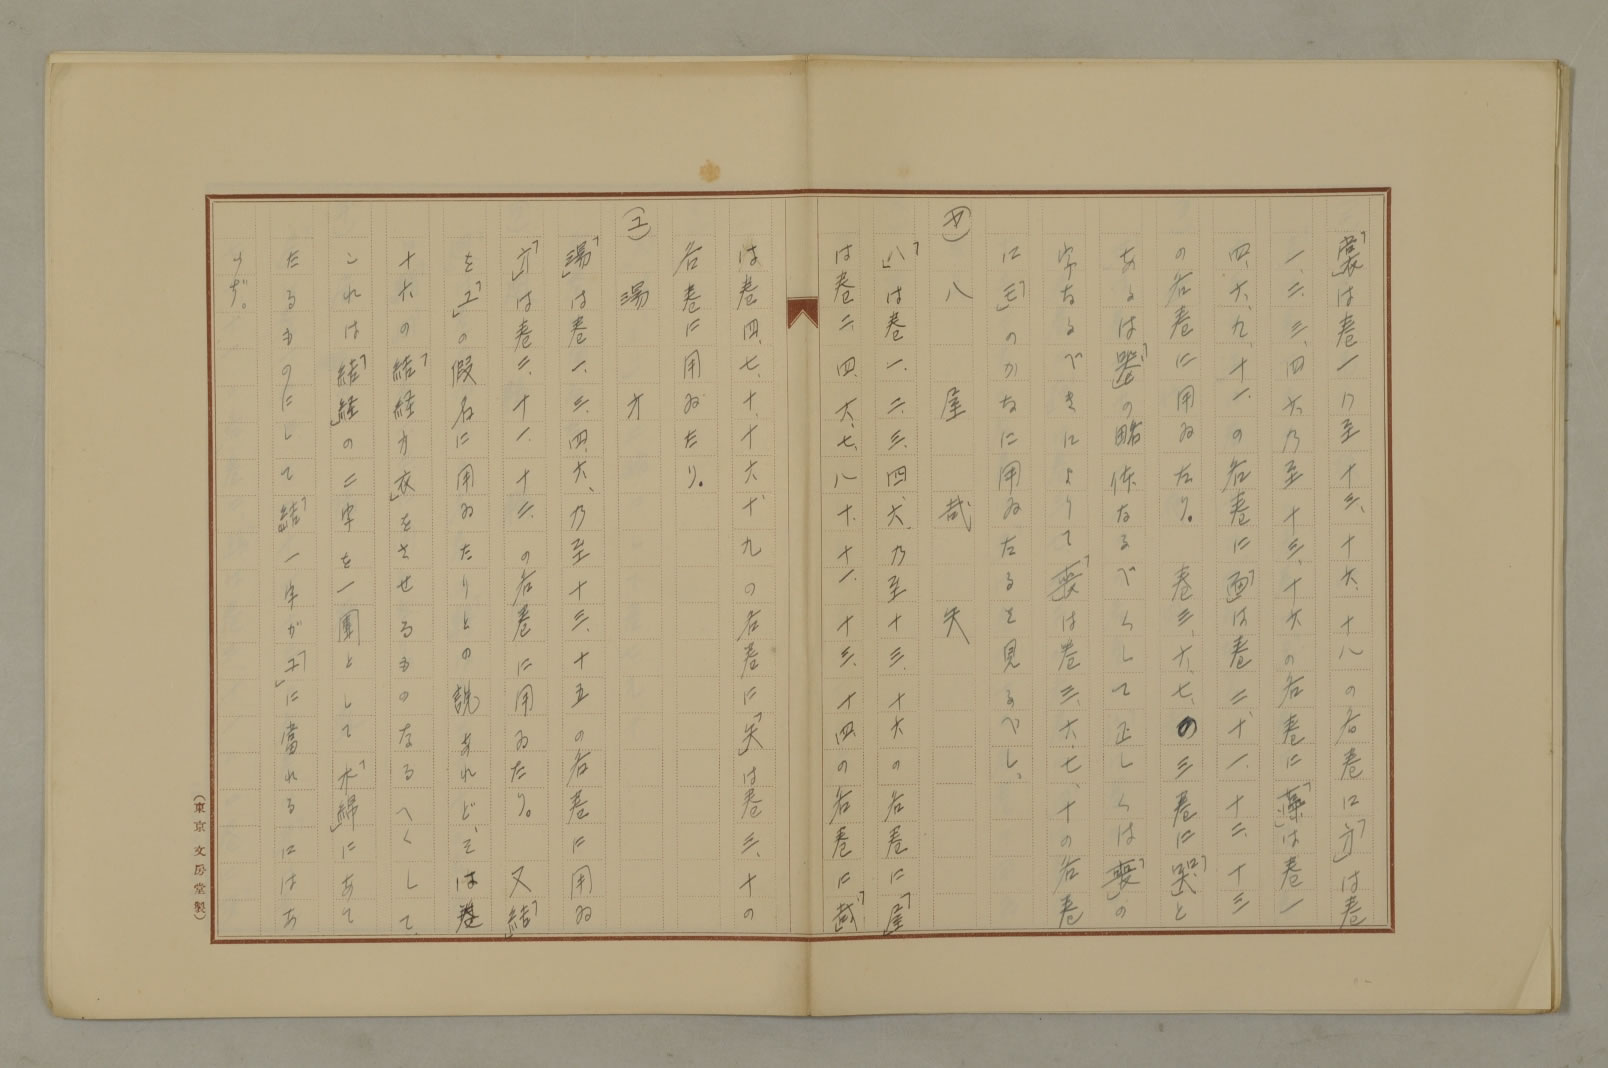 「裳」は巻一乃至十三、十六、十八の各巻に「方」は巻
一、二、三、四、六乃至十三、十六の各巻に「藻」は巻一
四、六、九、十一、の各巻に「面」は巻二、十一、十二、十三
の各巻に用ゐたり。巻三、六、七、の三巻に「哭」と
あるは「器」の略体なるべくして正しくは「喪」の
字なるべきによりて「喪」は巻三、六、七、十の各巻
に「モ」のかなに用ゐたるを見るべし、
(ヤ)八屋哉矢
「八」は巻一、二、三、四、六、乃至十三、十六の各巻に「屋」
は巻二、四、六、七、八、十、十一、十三、十四の各巻に「哉」
は巻四、七、十、十六、十九の各巻に「矢」は巻三、十の
各巻に用ゐたり。
(ユ)湯方
「湯」は巻一、三、四、六、乃至十三、十五の各巻に用ゐ
「方」は巻二、十一、十二、の各巻に用ゐたり。又「結」
を「ユ」の假名に用ゐたりとの説あれど、そは巻
十六の「結経方衣」をさせるものなるへくして、
これは「結経」の二字を一團として「木綿」にあて
たるものにして「結」一字が「ユ」に當れるにはあ
らず。
(東京文房堂製)